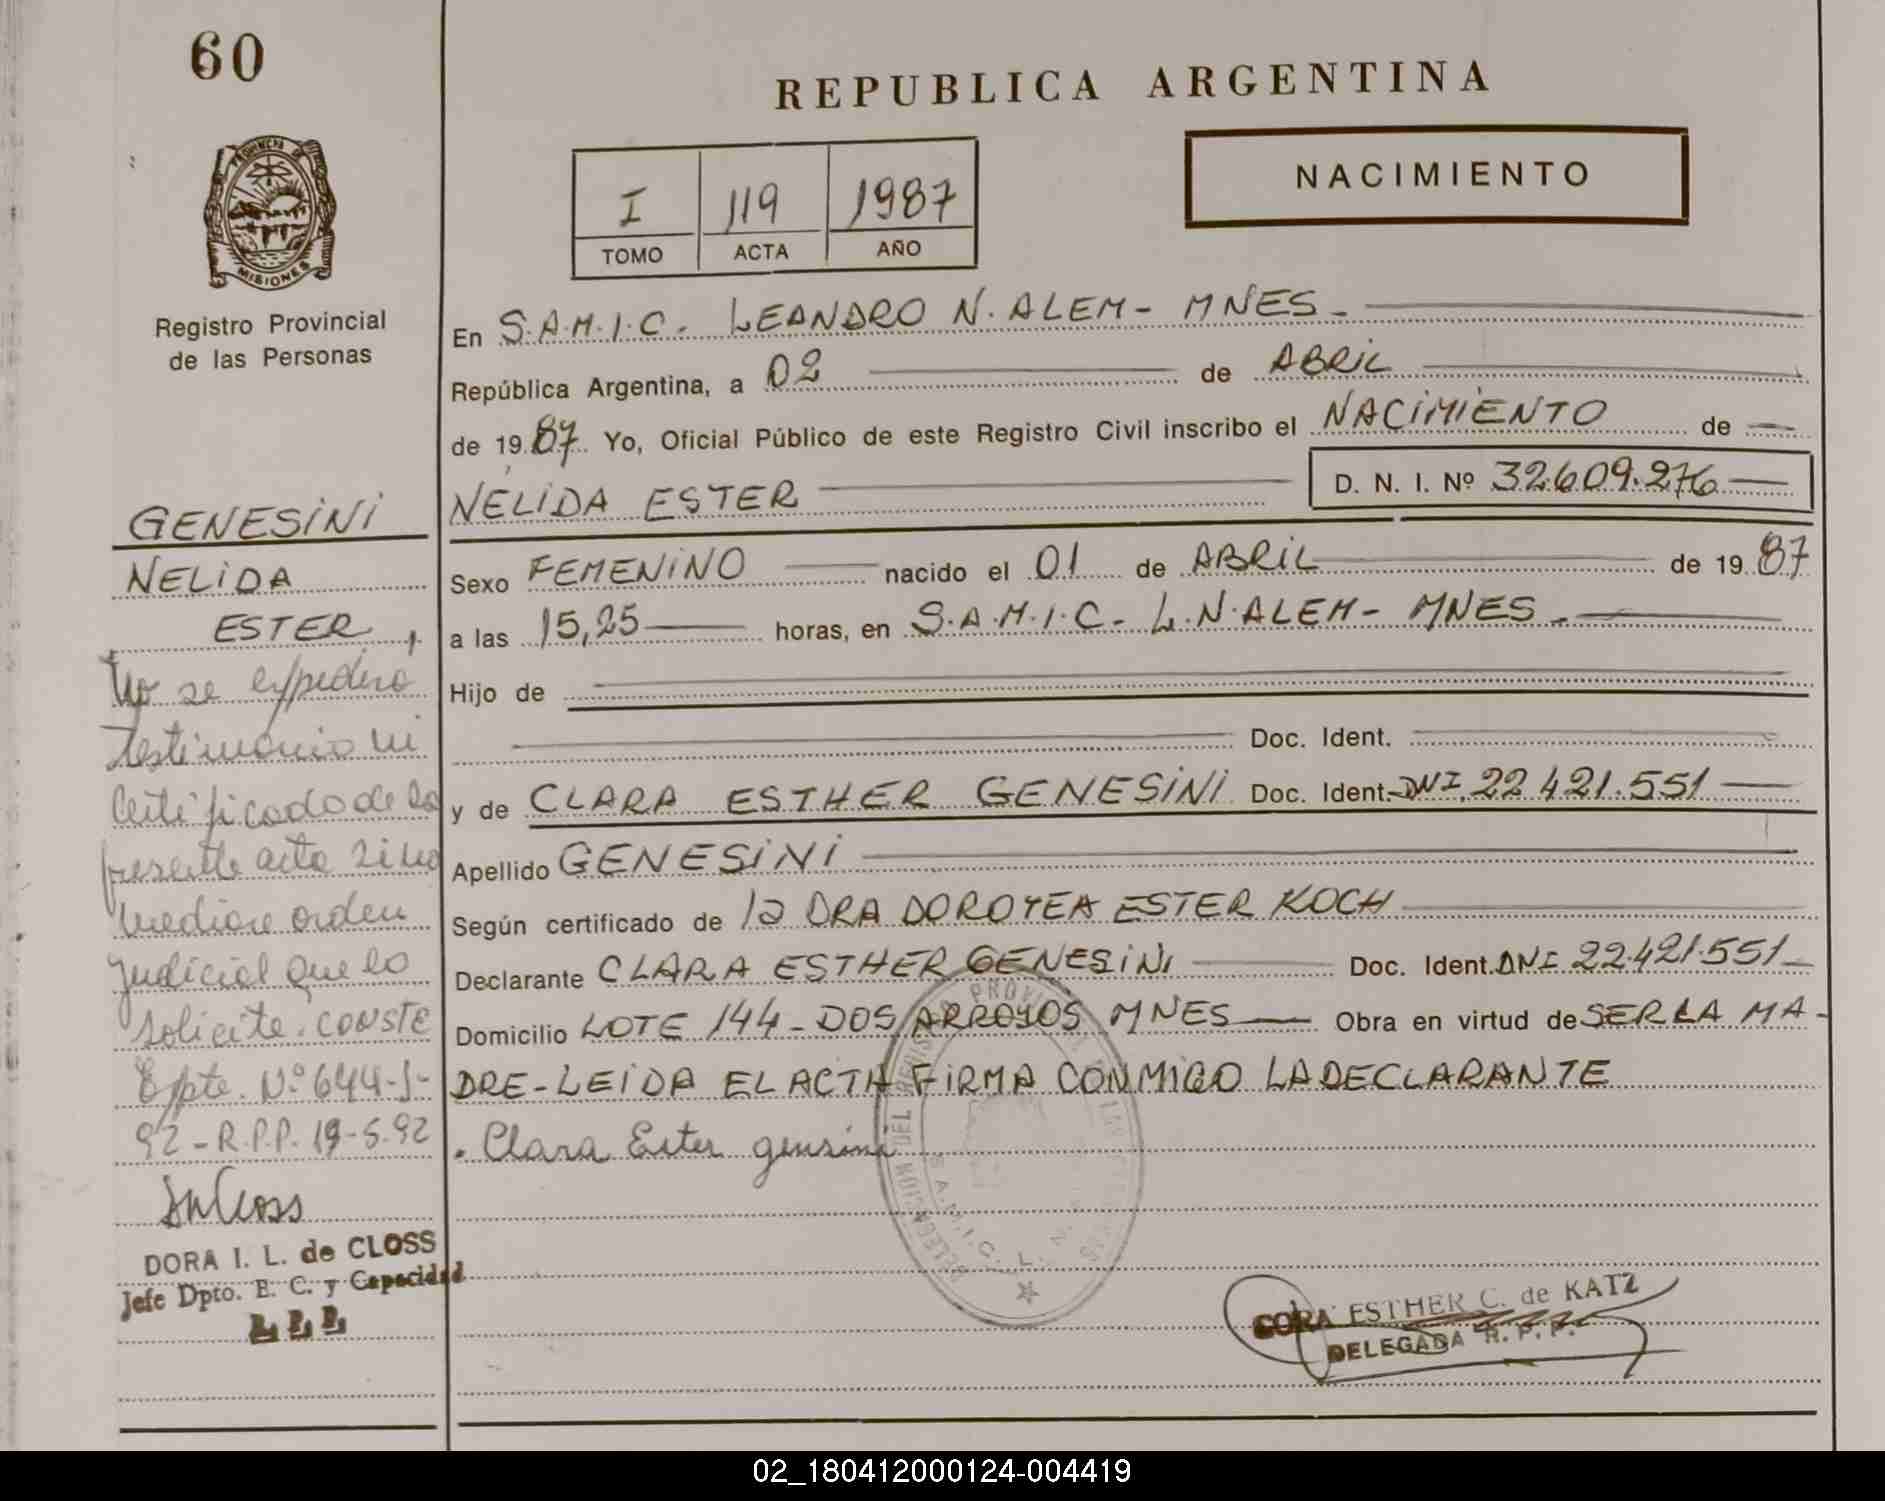 60
REPUBLICA ARGENTINA
PROVINCIA DE
MISIONES
Registro Provincial
de las Personas
I 119 1987
TOMO ACTA AÑO
NACIMIENTO
En S.A.M.I.C. LEANDRO N. ALEM - MNES -
República Argentina, a 02 de ABRIL
de 1987 Yo, Oficial Público de este Registro Civil inscribo el NACIMIENTO de
NELIDA ESTER D. N. I. Nº 32.609.276
Sexo FEMENINO nacido el 01 de ABRIL de 1987
a las 15,25 horas, en S.A.M.I.C. - L.N. ALEM - MNES -
Hijo de
Doc. Ident.
y de CLARA ESTHER GENESINI Doc. Ident. DNI 22.421.551
Apellido GENESINI
Según certificado de la DRA DOROTEA ESTER KOCH
Declarante CLARA ESTHER GENESINI Doc. Ident. DNI 22.421.551
Domicilio LOTE 144 - DOS ARROYOS MNES Obra en virtud de SER LA MA-
DRE - LEIDA EL ACTA FIRMA CONMIGO LA DECLARANTE
. Clara Ester genesini
GENESINI
NELIDA
ESTER
No se expedirá
testimonio ni
certificado de la
presente acta si no
mediare orden
judicial que lo
solicite. CONSTE
Expte. Nº 644-J-
92 - R.P.P. 19-5-92
DORA I. L. de CLOSS
Jefe Dpto. E. C. y Capacidad
R. P. P.
DELEGACION DEL REGISTRO PROVINCIAL
S.A.M.I.C. L. N.
CORA ESTHER C. de KATZ
DELEGADA R. P. P.
02_180412000124-004419